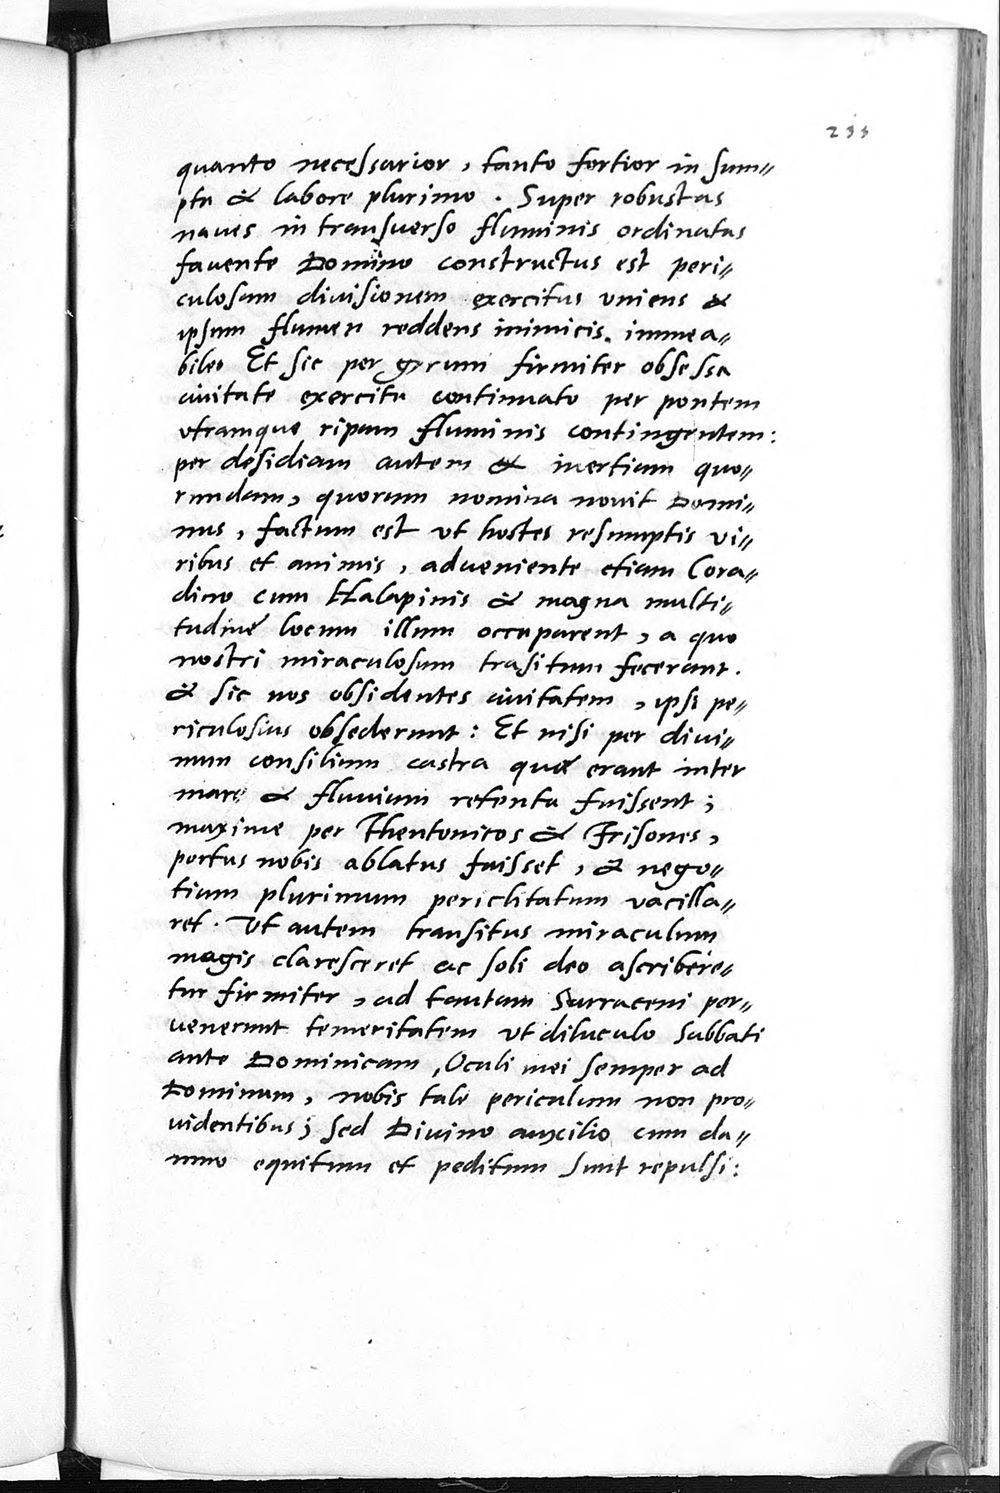 233
quanto necessarior, tanto fortior in sum=
ptu & labore plurimo. Super robustas
naues in transuerso fluminis ordinatas
fauente Domino constructus est peri=
culosam diuisionem exercitus vniens &
ipsum flumen reddens inimicis. inmea=
bile. Et sic per gyrum firmiter obsessa
ciuitate exercitu continuato per pontem
vtramque ripam fluminis contingentem:
per desidiam autem & inertiam quo=
rundam, quorum nomina nouit Domi=
nus, factum est vt hostes resumptis vi=
ribus et animis, adueniente etiam Cora=
dino cum Halapinis & magna multi=
tudine locum illum occuparent, a quo
nostri miraculosum trasitum fecerant.
& sic nos obsidentes ciuitatem, ipsi pe=
riculosius obsederunt: Et nisi per diui=
num consilium castra quae erant inter
mare & fluuium retenta fuissent;
maxime per Theutonicos & Frisones,
portus nobis ablatus fuisset, & nego=
tium plurimum periclitatum vacilla=
ret. Vt autem transitus miraculum
magis claresceret ac soli deo ascribere=
tur firmiter, ad tantam Sarraceni per=
uenerunt temeritatem vt diluculo Sabbati
ante Dominicam, Oculi mei semper ad
Dominum, nobis tale periculum non pro=
uidentibus; sed Diuino auxilio cum da=
mno equitum et peditum sunt repulsi: